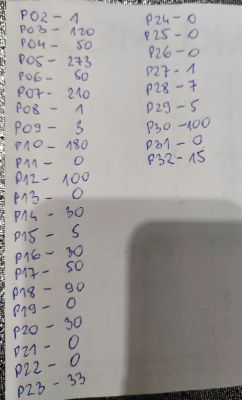 P02 - 1
P03 - 120
P04 - 50
P05 - 273
P06 - 50
P07 - 210
P08 - 1
P09 - 3
P10 - 180
P11 - 0
P12 - 100
P13 - 0
P14 - 30
P15 - 5
P16 - 30
P17 - 50
P18 - 90
P19 - 0
P20 - 30
P21 - 0
P22 - 0
P23 - 33
P24 - 0
P25 - 0
P26 - 0
P27 - 1
P28 - 7
P29 - 5
P30 - 100
P31 - 0
P32 - 15